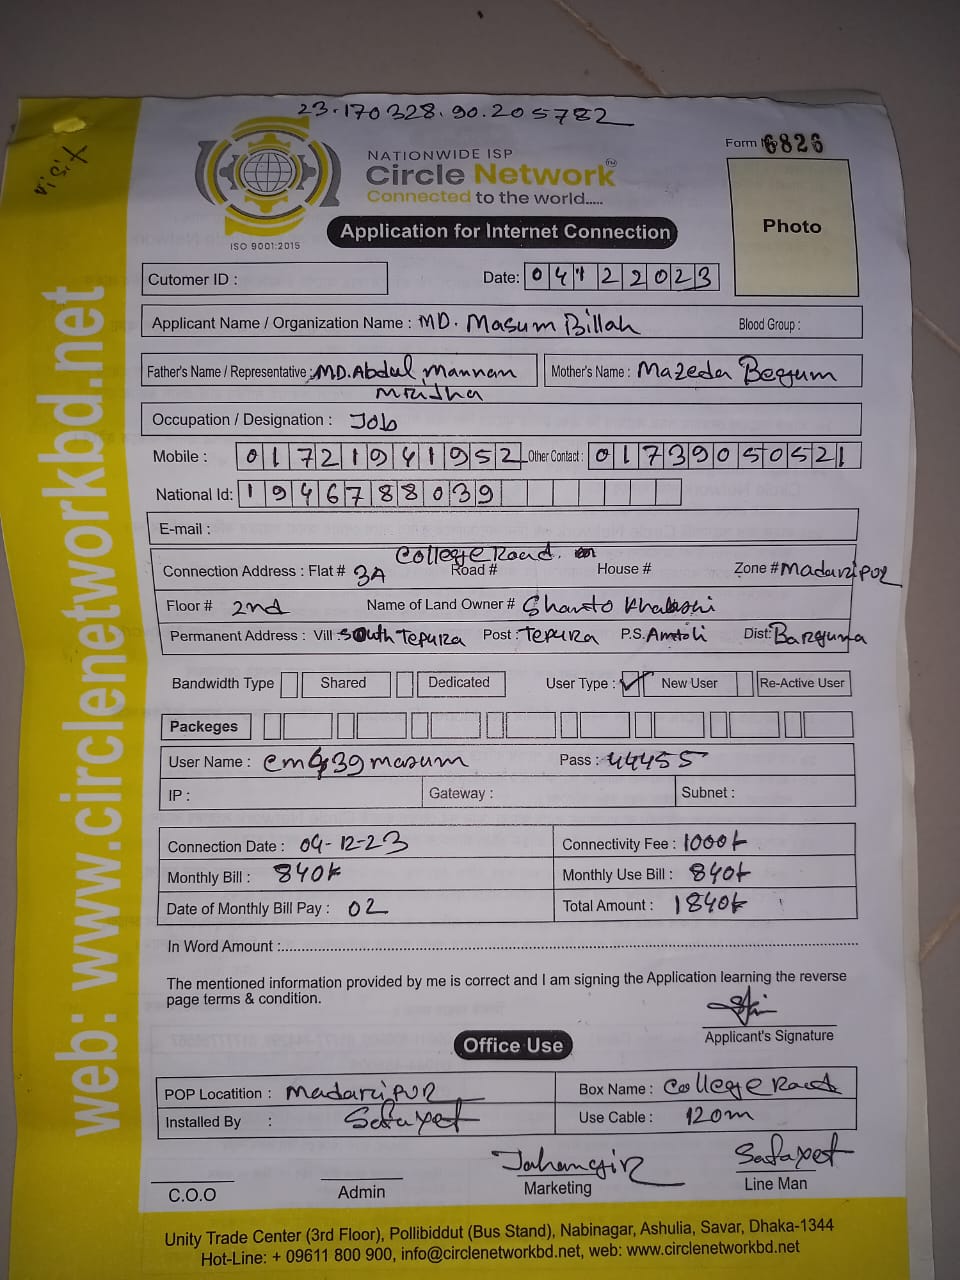 23.170328.90.205782
visit
NATIONWIDE ISP
Circle Network TM
Connected to the world.....
ISO 9001:2015
Form 6826
Photo
Application for Internet Connection
Cutomer ID :
Date: 04122023
Applicant Name / Organization Name : MD. Masum Billah Blood Group :
Father's Name / Representative : MD. Abdul Mannan Mridha Mother's Name : Mazeda Begum
Occupation / Designation : Job
Mobile : 01721941952 Other Contact : 01739050521
National Id: 1946788039
E-mail :
Connection Address : Flat # 3A College Road. Road # House # Zone # Madaripur
Floor # 2nd Name of Land Owner # Shanto Khalashi
Permanent Address : Vill : South Tepura Post : Tepura P.S. Amtoli Dist: Barguna
Bandwidth Type Shared Dedicated User Type : ✓ New User Re-Active User
Packeges
User Name : masum Pass : 44455
IP : Gateway : Subnet :
Connection Date : 04-12-23 Connectivity Fee : 1000t
Monthly Bill : 840t Monthly Use Bill : 840t
Date of Monthly Bill Pay : 02 Total Amount : 1840t
In Word Amount :
The mentioned information provided by me is correct and I am signing the Application learning the reverse
page terms & condition.
Applicant's Signature
Office Use
POP Locatition : Madaripur Box Name : College Road
Installed By : Safayet Use Cable : 120m
Jahangir Safayet
C.O.O Admin Marketing Line Man
Unity Trade Center (3rd Floor), Pollibiddut (Bus Stand), Nabinagar, Ashulia, Savar, Dhaka-1344
Hot-Line: + 09611 800 900, info@circlenetworkbd.net, web: www.circlenetworkbd.net
web: www.circlenetworkbd.net